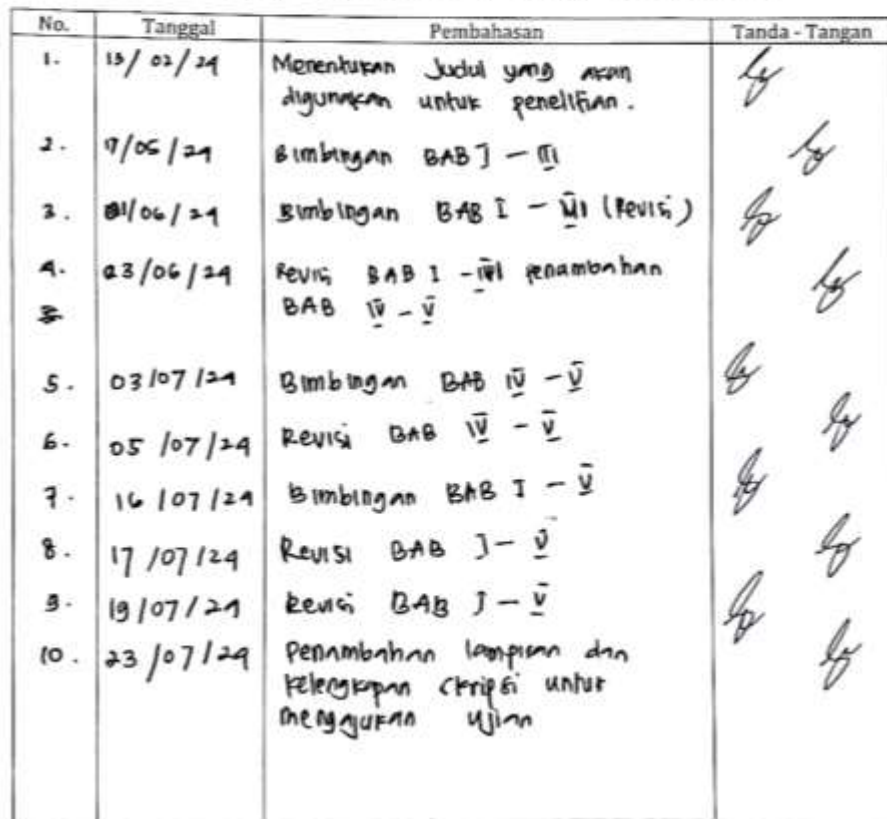 No. Tanggal Pembahasan Tanda - Tangan
1. 13/02/24 Menentukan Judul yang akan
digunakan untuk penelitian.
2. 17/05/24 Bimbingan BAB I - III
3. 01/06/24 Bimbingan BAB I - III (Revisi)
4. 23/06/24 Revisi BAB I - III penambahan
BAB IV - V
5. 03/07/24 Bimbingan BAB IV - V
6. 05/07/24 Revisi BAB IV - V
7. 16/07/24 Bimbingan BAB I - V
8. 17/07/24 Revisi BAB I - V
9. 19/07/24 Revisi BAB I - V
10. 23/07/24 Penambahan lampiran dan
kelengkapan skripsi untuk
mengajukan ujian